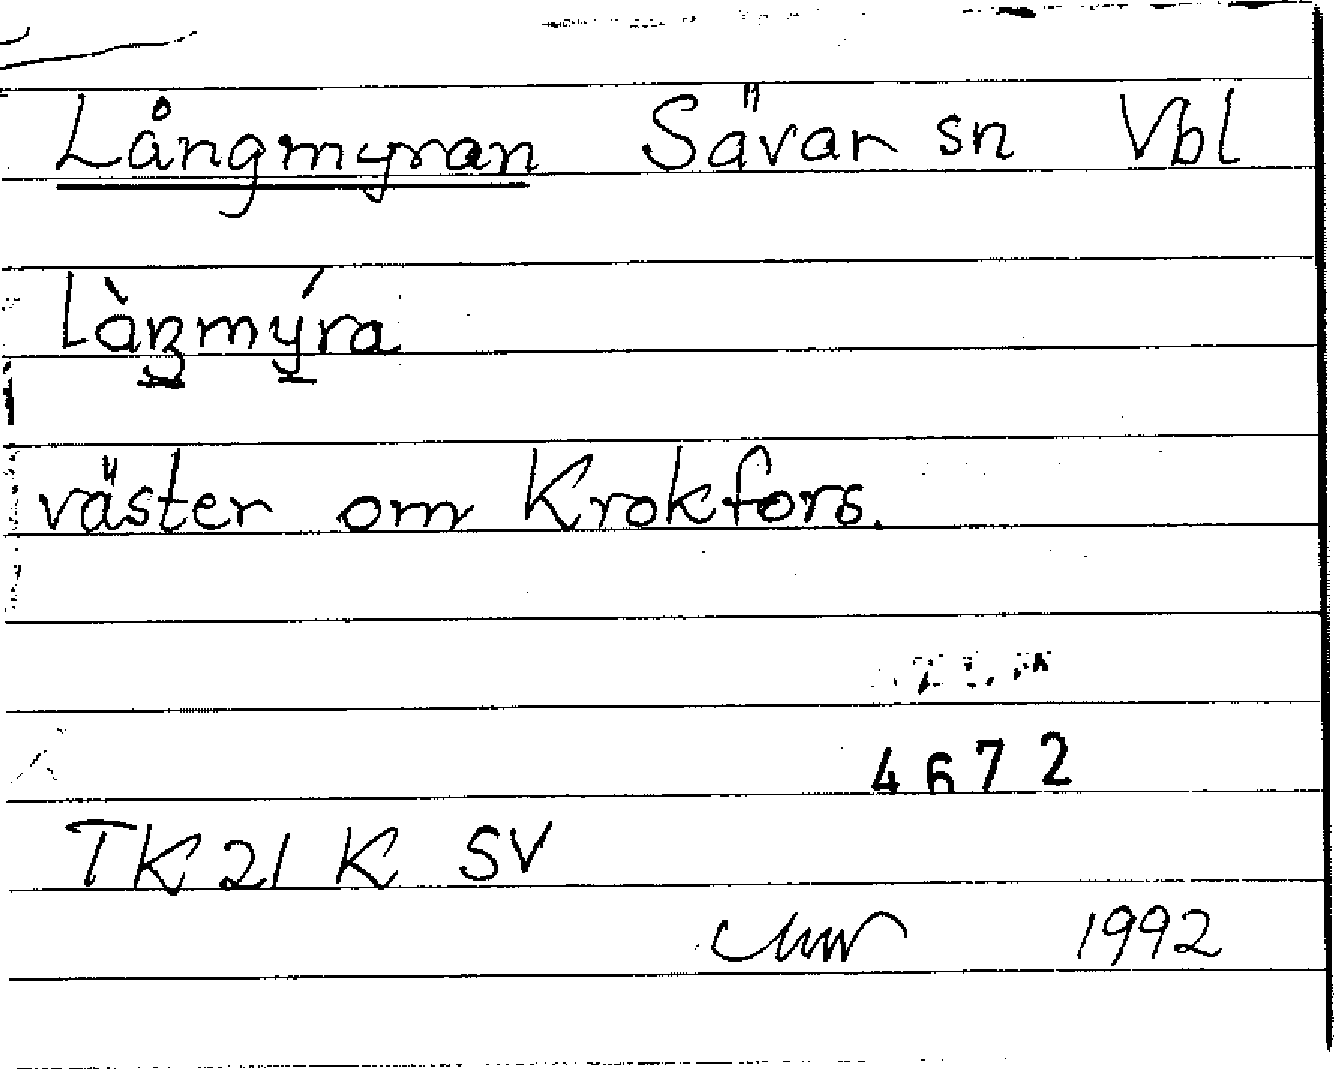 Långmyran Sävar sn Vbl
Làŋmýra
väster om Krokfors.
4672
TK 21 K SV
1992